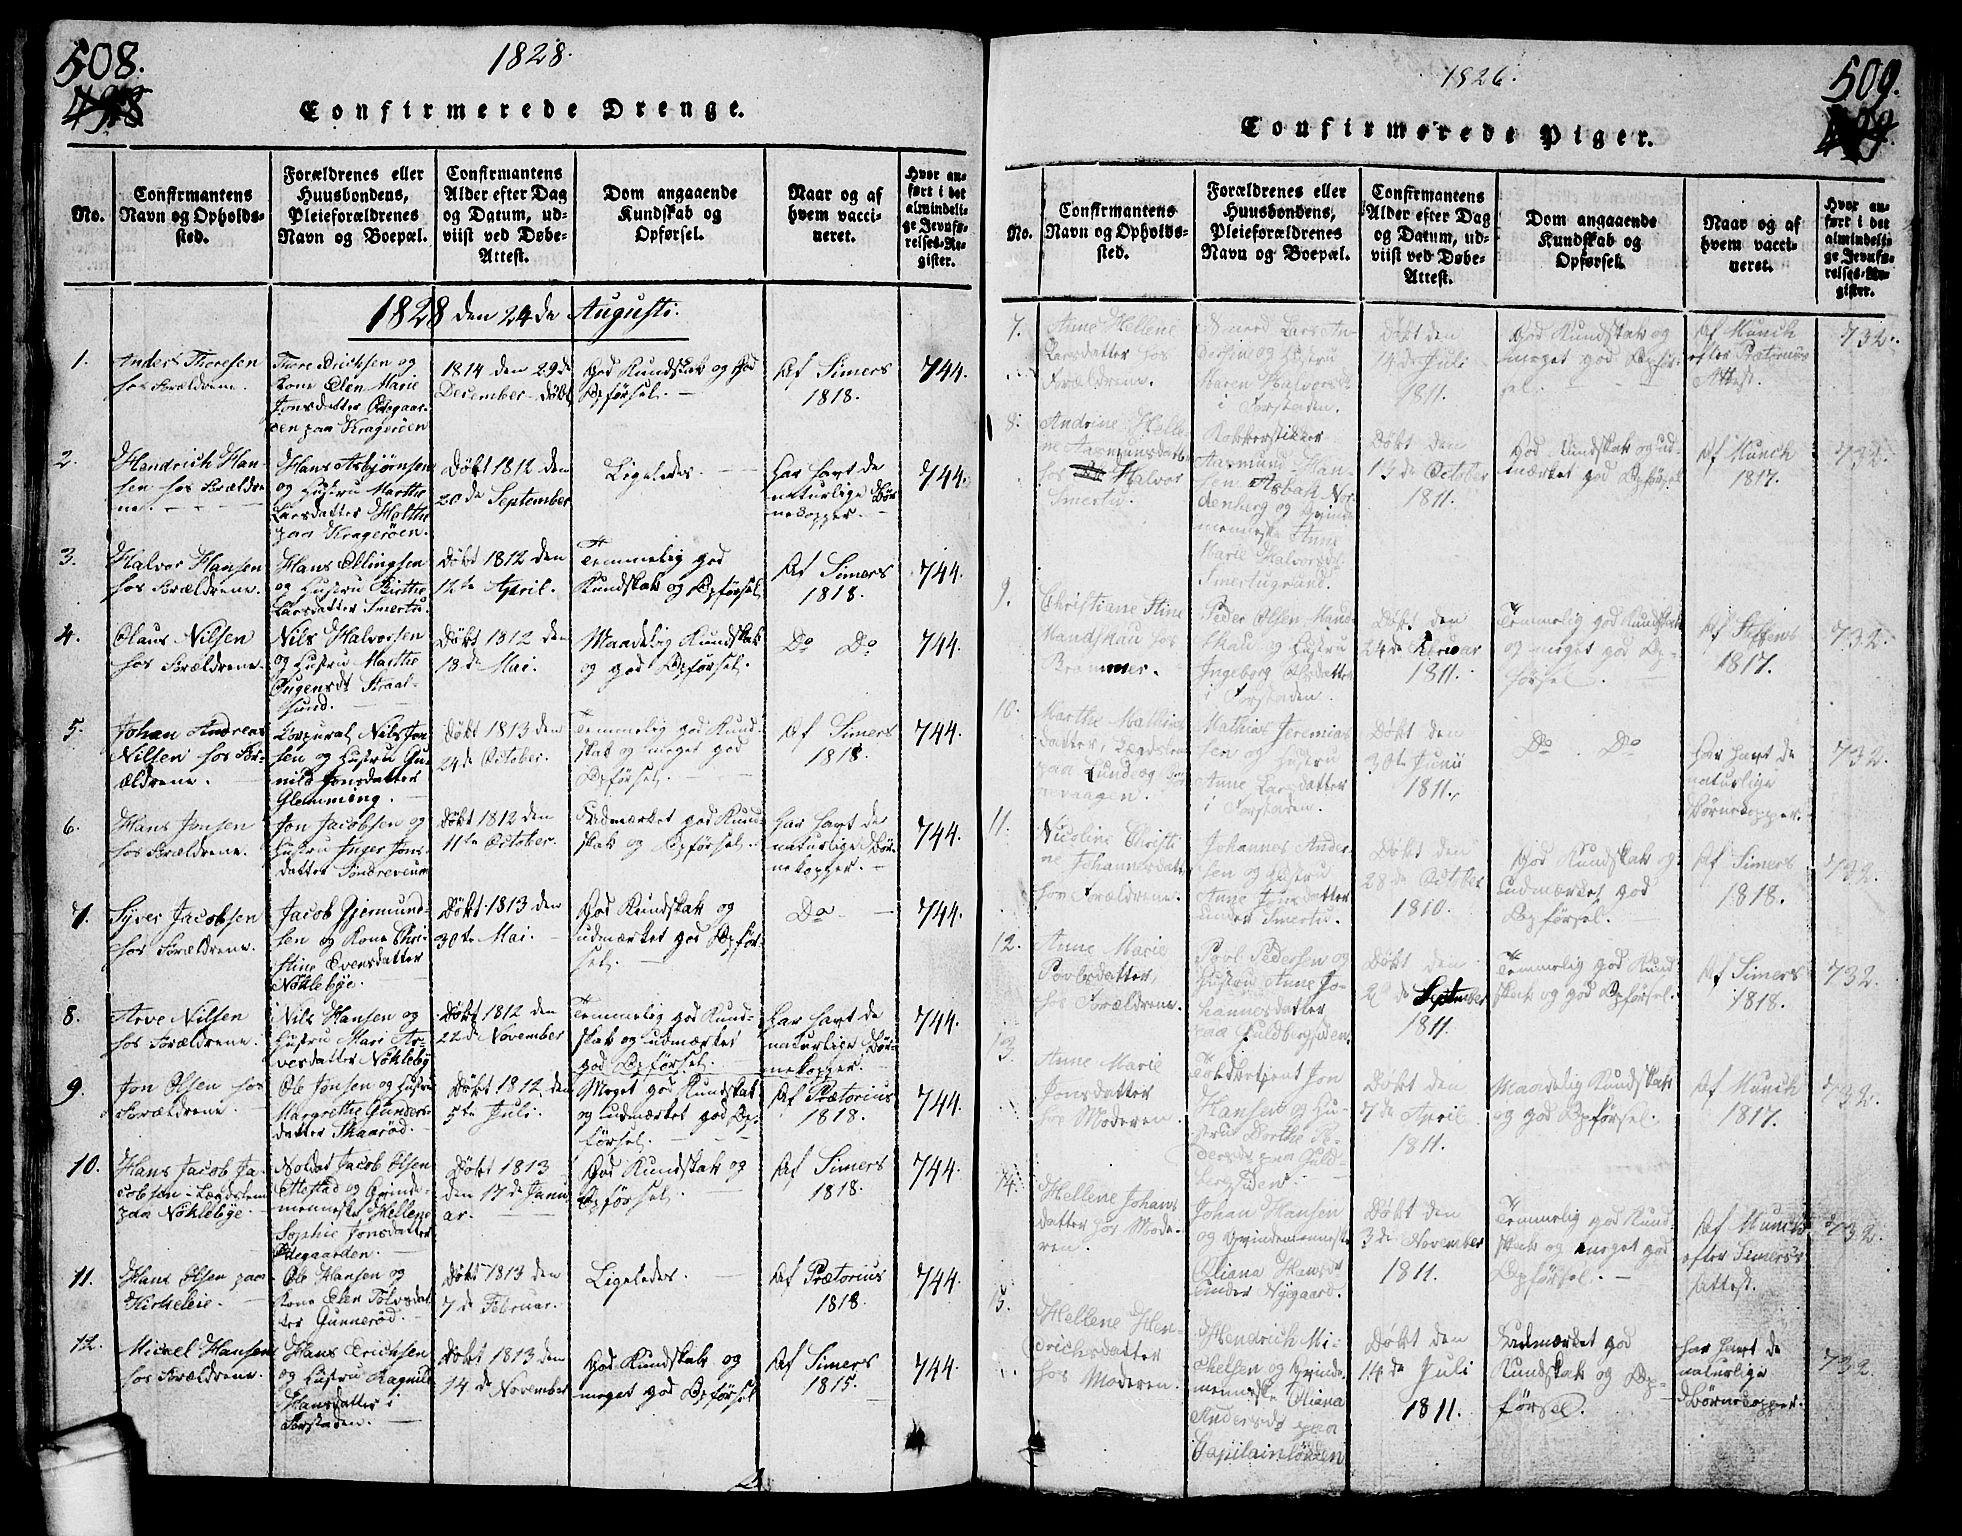 508.
498
1828.
Confirmerede Drenge.
No.
Confirmantens
Navn og Opholds-
sted.
Forældrenes eller
Huusbondens,
Pleieforældrenes
Navn og Boepæl.
Confirmantens
Alder efter Dag
og Datum, ud-
viist ved Døbe-
Attest.
Dom angaaende
Kundskab og
Opførsel.
Naar og af
hvem vacci-
neret.
Hvor an-
ført i det
almindeli-
ge Jevnfø-
relses-Re-
gister.
1828 den 24de Augusti.
1.
Anders Thoresen
hos Forældrene.
Thore Erichsen og
Kone Elen Marie
Jonsdatter Ødegaar-
den paa Kragerøen
1814 den 29de
December døbt
God Kundskab og God
Opførsel.
Af Simers
1818.
744.
2.
Hendrich Han-
sen hos Forældre
ne.
Hans Asbjørnsen
og Hustru Marthe
Larsdatter
paa Kragerøen.
Døbt 1812 den
20de September
Ligeledes.
Har havt de
naturlige Bør-
nekopper.
744.
3.
Halvor Hansen
hos Forældrene.
Hans Ellingsen
og Hustru Birthe
Larsdatter Smertu.
Døbt 1812 den
12te April.
Temmelig god
Kundskab og Opførsel.
Af Simers
1818.
744.
4.
Olaus Nilsen
hos Forældrene.
Nils Halvorsen
og Hustru Marthe
Eugensdt Straal-
sund.
Døbt 1812 den
18de Mai.
Maadelig Kundskab
og god Opførsel.
Do Do
744.
5.
Johan Andreas
Nilsen hos For-
ældrene.
Corporal Nils Jon-
sen og Hustru Gu-
nild Jonsdatter
Glemming.
Døbt 1813 den
24de October.
Temmelig god Kund-
skab og meget god
Opførsel.
Af Simers
1818.
744.
6.
Hans Jonsen
hos Forældrene.
Jon Jacobsen og
Hustru Inger Jons-
datter Søndrevium
Døbt 1812 den
11te October.
Udmærket god Kund-
skab og Opførsel.
Har havt de
naturlige Bør-
nekopper.
744.
7.
Syver Jacobsen
hos Forældrene.
Jacob Gjermund-
sen og Kone Chri-
stine Evensdatter
Nøklebye.
Døbt 1813 den
30te Mai.
God Kundskab og
udmærket god Opfør-
sel.
Do
744.
8.
Arve Nilsen
hos Forældrene.
Nils Hansen og
Hustru Mari Ar-
vesdatter Nøkleby
Døbt 1812 den
22de November
Temmelig god Kund-
skab og udmærket
god Opførsel.
Har havt de
naturlige Bør-
nekopper.
744.
9.
Jon Olsen hos
Forældrene.
Ole Jonsen og Hustru
Margrethe Gunders-
datter Skaarød.
Døbt 1812 den
5te Juli.
Meget god Kundskab
og udmærket god Op-
førsel.
Af Prætorius
1818.
744.
10.
Hans Jacob Ja-
cobsen Lægdslem
paa Nøklebye.
Soldat Jacob Olsen
Ellestad og Qvinde-
menneske Hellene
Sophie Jonsdatter
Ødegaarden.
Døbt 1813
den 17de Janu
ar.
God Kundskab og
Opførsel.
Af Simers
1818.
744.
11.
Hans Olsen paa
Kirkeleie.
Ole Hansen og
Kone Elen Tolvsdat-
ter Gunnerød.
Døbt 1813 den
7de Februar.
Ligeledes.
Af Prætorius
1818.
744.
12.
Micael Hansen
hos Forældrene.
Hans Erichsen
og Hustru Ragnild
Hansdatter i
Forstaden.
Døbt 1813 den
14de November
God Kundskab og
meget god Opførsel
Af Simers
1815.
744.
1826.
509.
499.
Confirmerede Piger.
No.
Confirmantens
Navn og Opholds-
sted.
Forældrenes eller
Huusbondens,
Pleieforældrenes
Navn og Boepæl.
Confirmantens
Alder efter Dag
og Datum, ud-
viist ved Døbe-
Attest.
Dom angaaende
Kundskab og
Opførsel.
Naar og af
hvem vacci-
neret.
Hvor an-
ført i det
almindeli-
ge Jevnfø-
relses-Re-
gister.
7.
Anne Hellene
Larsdatter hos
Forældrene.
Smed Lars An-
dersen og Hustru
Maren Halvorsdt
i Forstaden.
Døbt den
14de Juli
1811.
God Kundskab og
meget god Opfør-
sel.
Af Munch
efter Prætorius
Attest.
732.
8.
Andrine Helle-
ne Aasmundsdatter
hos Halvor
Smertu.
Kokkerstikker
Aasmund Han-
sen Asbak Nor-
denberg og Qvinde
menneske Anne
Marie Halvorsdt
Smertugrund.
Døbt den
13de October
1811.
God Kundskab og ud-
mærket god Opførsel
Af Munch
1817.
732.
9.
Christiane Stine
Mandskau hos
Brammer.
Peder Olsen Mand-
skau og Hustru
Ingeborg Olsdatter
i Forstaden.
Døbt den
24de Februar
1811.
Temmelig god Kundskab
og meget god Op-
førsel.
Af Steffens
1817.
732.
10.
Marthe Mathias
datter, Lægdslem
paa Lunde og
nevaagen.
Mathias Jeremias
sen og Hustru
Anne Larsdatter
i Forstaden.
Døbt den
30te Junii
1811.
Do Do
Har havt de
naturlige
Børnekopper.
732.
11.
Nicoline Christi
ne Johannesdatter
hos Forældrene.
Johannes Ander-
sen og Hustru
Anne Jonsdatter
under Smertu.
Døbt den
28de October
1810.
God Kundskab og
udmærket god
Opførsel.
Af Simers
1818.
732.
12.
Anne Marie
Povlsdatter,
hos Forældrene.
Povl Pedersen og
Hustru Anne Jo-
hannesdatter
paa Guldbergsiden.
Døbt den
29de September
1811.
Temmelig god Kund
skab og god Opførsel.
Af Simers
1818.
732.
13.
Anne Marie
Jonsdatter
hos Moderen.
Toldbetjent Jon
Hansen og Hu-
stru Dorthe Pe-
dersdt paa Guld-
bergsiden.
Døbt den
7de April
1811.
Maadelig Kundskab
og god Opførsel.
Af Munch
1817.
732.
14.
Hellene Johans
datter hos Mode-
ren.
Johan Hansen
og Qvindemenneske
Eliana Hansdt
under Nyegaard.
Døbt den
3de November
1811.
Temmelig god Kund
skab og meget god
Opførsel.
Af Munch
efter Simers's
Attest.
732.
15.
Hellene Hen-
drichsdatter
hos Moderen.
Hendrich Mi-
chelsen og Qvinde
menneske Eliana
Andersdt paa
Capitainløkken
Døbt den
14de Juli
1811.
Udmærket god
Kundskab og Op-
førsel.
Har havt de
naturlige
Børnekopper.
732.